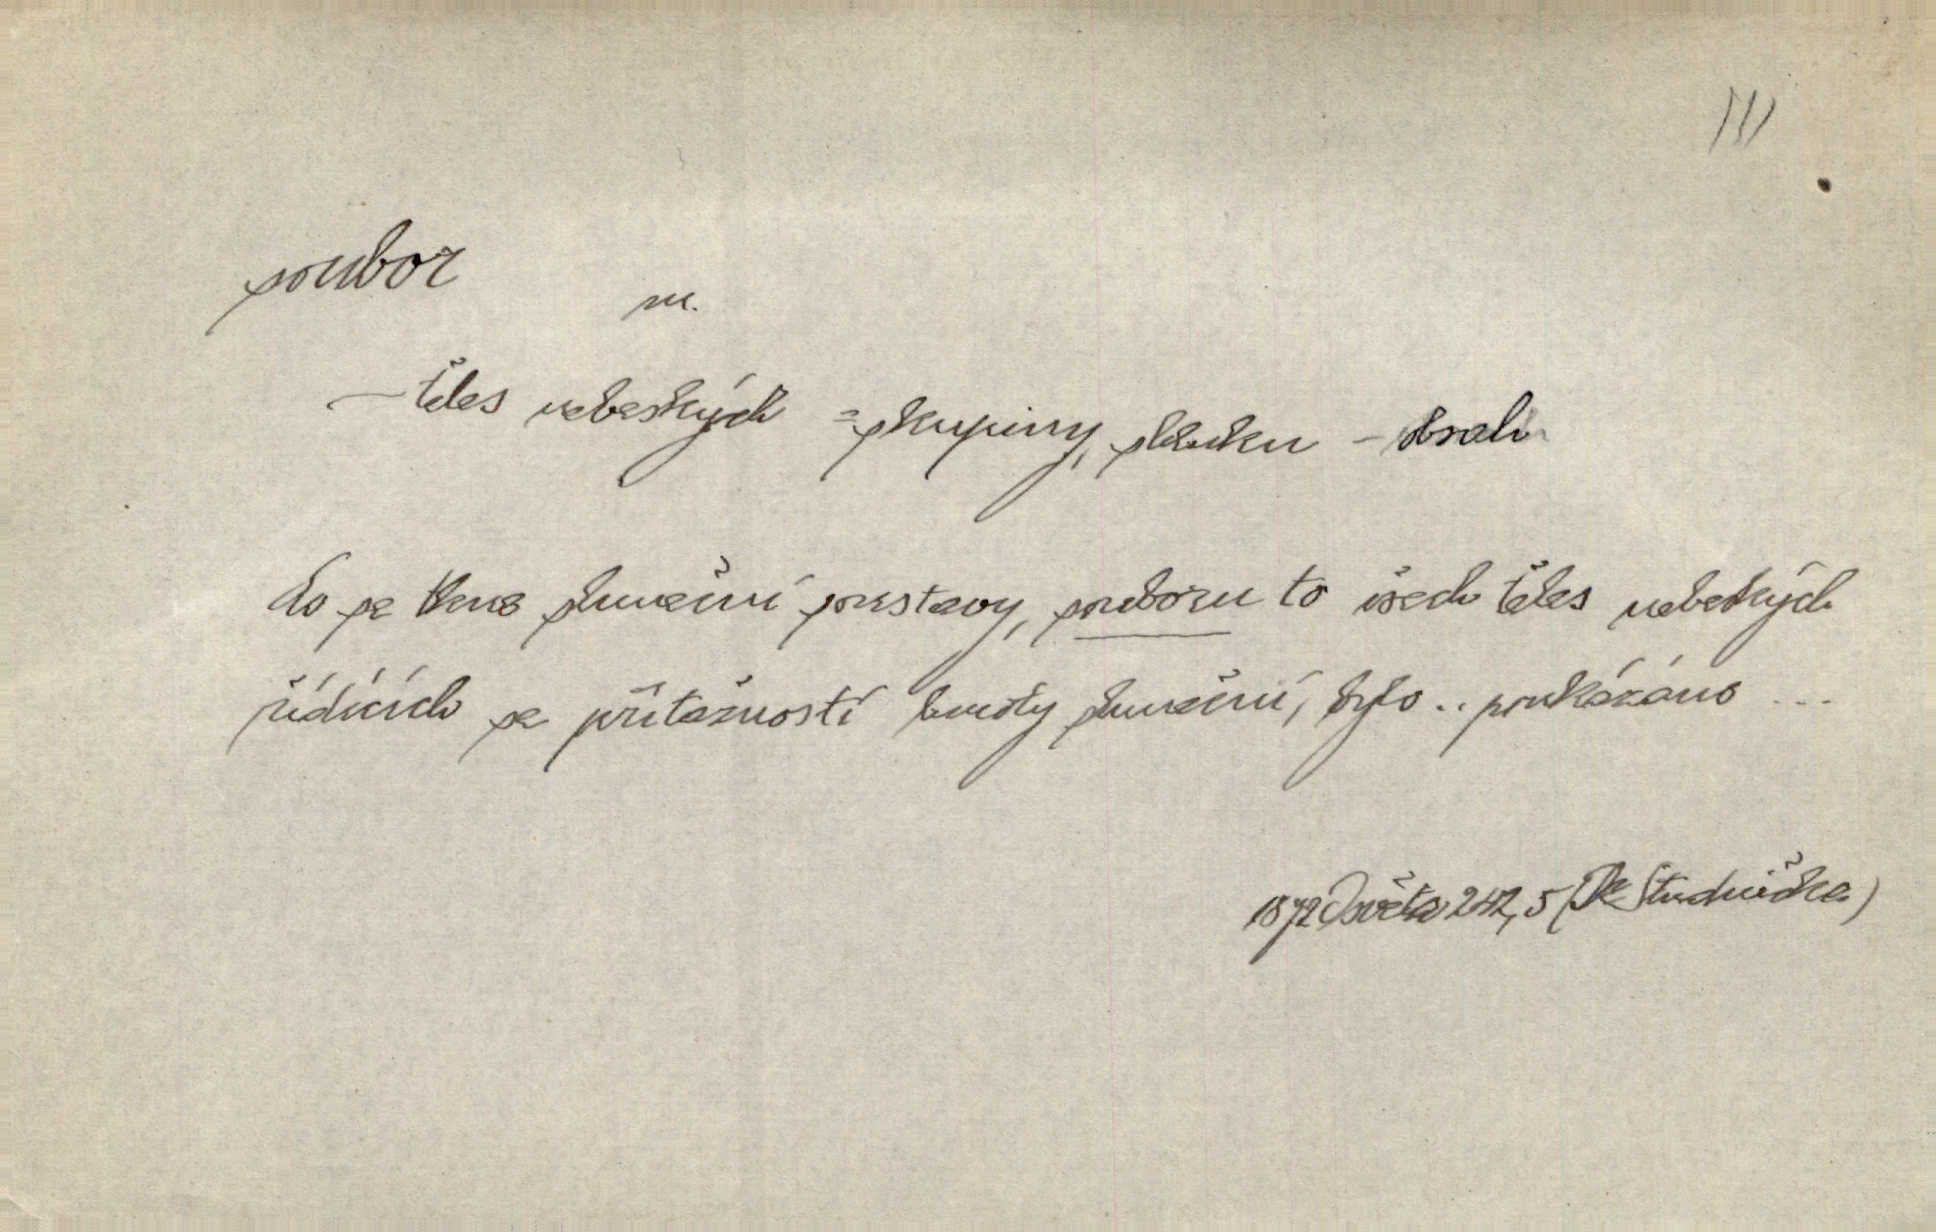 soubor
m.
– těles nebeských = skupiny, shluku –
Co se týče sluneční soustavy, souboru to všech těles nebeských
řídících se přítažností hmoty sluneční, bylo .. poukázáno ...
1872 Osvěta 242, 5 (Dr Studnička)